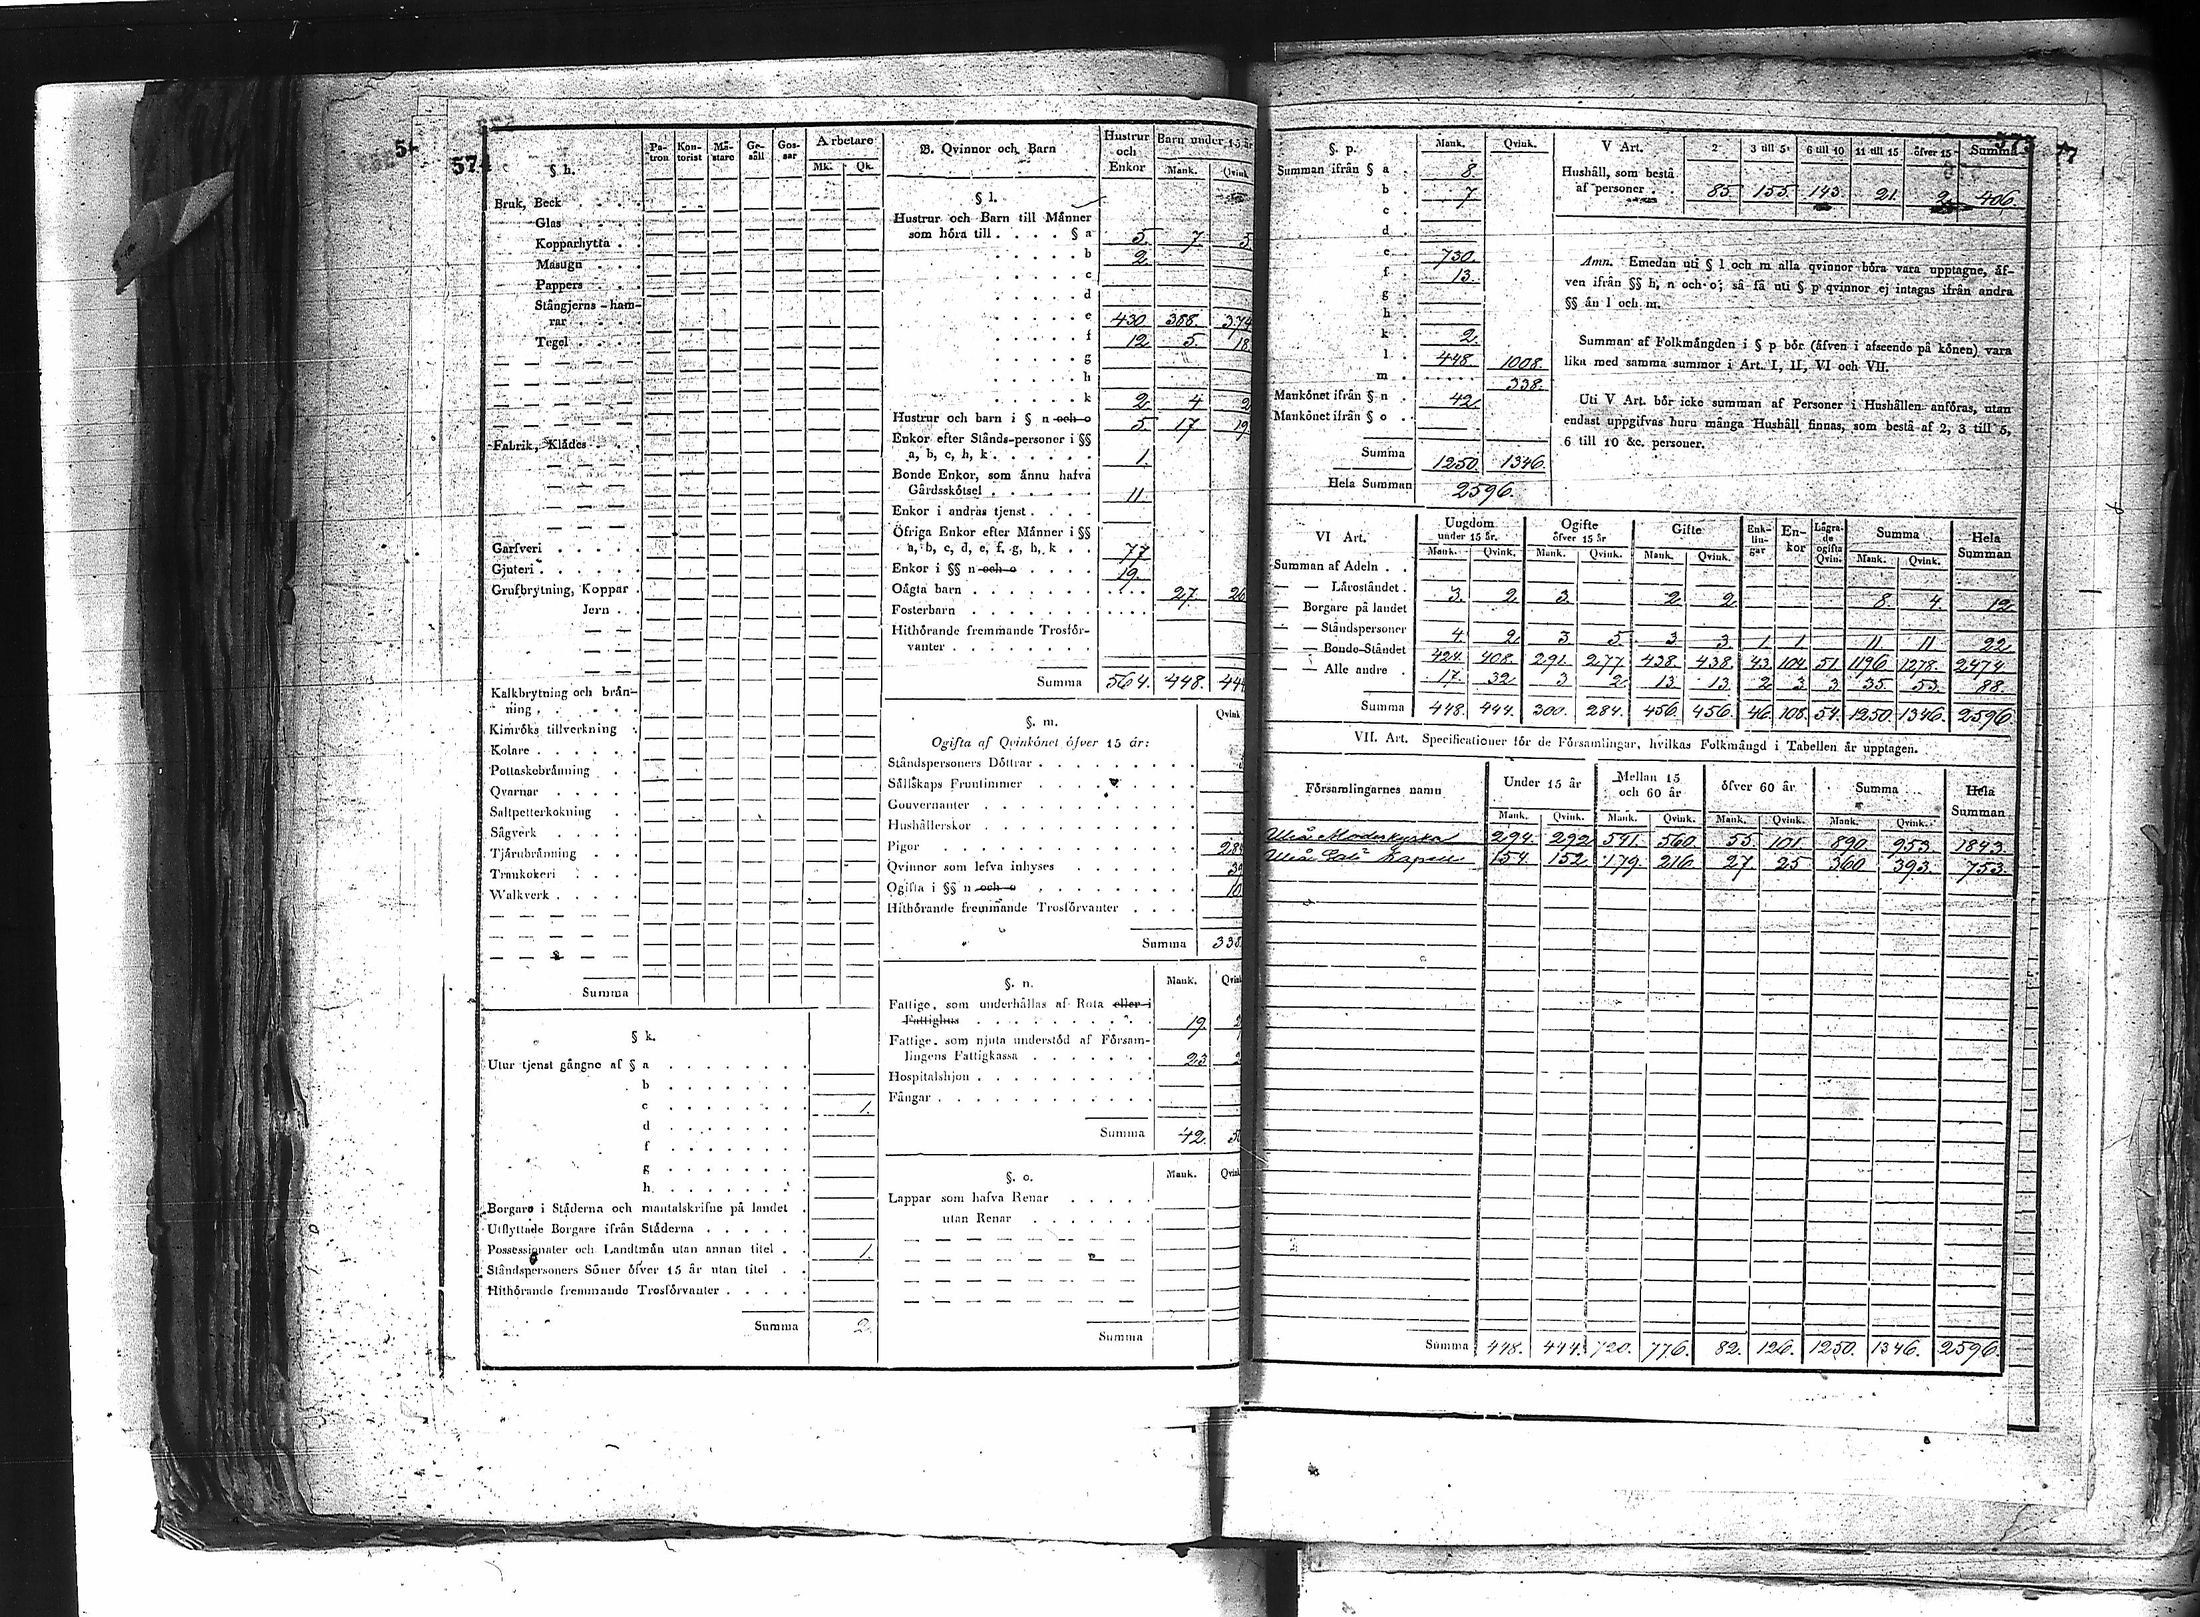 574
§ h.
Pa-tron Kon-torist Mä-stare Ge-säll Gos-sar Arbetare
Mk. Qk.
Bruk, Beck . . . .
Glas . . . .
Kopparhytta . .
Masugn . . .
Pappers . . .
Stångjerns-ham-
rar . . . .
Tegel . . . .
Fabrik, Klädes . . .
Garfveri . . . . .
Gjuteri . . . . .
Grufbrytning, Koppar .
Jern . .
Kalkbrytning och brän-
ning . . . . .
Kimröks tillverkning .
Kolare . . . . .
Pottaskebränning . .
Qvarnar . . . . .
Saltpetterkokning . .
Sågverk . . . . .
Tjärubränning . . .
Trankokeri . . . .
Walkverk . . . . .
Summa
§ k.
Utur tjenst gångne af § a . . . . . . .
b . . . . . . .
c . . . . . . . 1.
d . . . . . . .
f . . . . . . .
g . . . . . . .
h . . . . . . .
Borgare i Städerna och mantalskrifne på landet .
Utflyttade Borgare ifrån Städerna . . . . .
Possessionater och Landtmän utan annan titel . . 1.
Ståndspersoners Söner öfver 15 år utan titel . .
Hithörande fremmande Trosförvanter . . . . .
Summa 2.
B. Qvinnor och Barn
Hustrur och Enkor Barn under 15 år
Mank. Qvink.
§ l.
Hustrur och Barn till Männer
som höra till . . . . § a 5. 7 5
. . . . . b 2
. . . . . c
. . . . . d
. . . . . e 430 388. 374
. . . . . f 12 5. 18
. . . . . g
. . . . . h
. . . . . k 2 4 2
Hustrur och barn i § n och o 5. 17 19
Enkor efter Stånds-personer i §§
a, b, c, h, k . . . . . . 1.
Bonde Enkor, som ännu hafva
Gårdsskötsel . . . . . . 11.
Enkor i andras tjenst . . . .
Öfriga Enkor efter Männer i §§
a, b, c, d, e, f, g, h, k . . 77
Enkor i §§ n och o . . . . 19.
Oägta barn . . . . . . . . . . . 27. 26
Fosterbarn . . . . . . . . . . .
Hithörande fremmande Trosför-
vanter . . . . . . . .
Summa 564. 448. 444
§. m.
Qvink
Ogifta af Qvinkönet öfver 15 år:
Ståndspersoners Döttrar . . . . . . . . .
Sällskaps Fruntimmer . . . . . . . .
Gouvernanter . . . . . . . . . . .
Hushållerskor . . . . . . . . . . .
Pigor . . . . . . . . . . . . 284
Qvinnor som lefva inhyses . . . . . . . 39
Ogifta i §§ n och o . . . . . . . . . 10.
Hithörande fremmande Trosförvanter . . . .
Summa 338.
§. n. Mank. Qvink
Fattige, som underhållas af Rota eller i
Fattighus . . . . . . . . . . 19. 2
Fattige, som njuta understöd af Försam-
lingens Fattigkassa . . . . . . . 23 2
Hospitalshjon . . . . . . . . . .
Fångar . . . . . . . . . . . .
Summa 42.
§. o. Mank. Qvink
Lappar som hafva Renar . . . . .
utan Renar . . . . . .
Summa
§. p. Mank. Qvink.
Summan ifrån § a . 8.
b . 7
c .
d .
e . 730.
f . 13.
g .
h .
k . 2.
l . 448. 1008.
m . . . . . . 338.
Mankönet ifrån § n . 42.
Mankönet ifrån § o .
Summa 1250. 1346.
Hela Summan 2596.
V Art. 2 3 till 5 6 till 10 11 till 15 öfver 15 Summa
Hushåll, som bestå
af personer . . 85. 155. 143. 21. 2. 406.
Anm. Emedan uti § l och m alla qvinnor böra vara upptagne, äf-
ven ifrån §§ h, n och o; så få uti § p qvinnor ej intagas ifrån andra
§§ än l och m.
Summan af Folkmängden i § p bör (äfven i afseende på könen) vara
lika med samma summor i Art. I, II, VI och VII.
Uti V Art. bör icke summan af Personer i Hushållen anföras, utan
endast uppgifvas huru många Hushåll finnas, som bestå af 2, 3 till 5,
6 till 10 &c. personer.
VI Art. Ungdom under 15 år. Ogifte öfver 15 år Gifte Enk-lin-gar En-kor Lägra-de ogifta Qvin. Summa Hela Summan
Mank. Qvink. Mank. Qvink. Mank. Qvink. Mank. Qvink.
Summan af Adeln . .
— — Läroståndet . 3. 2 3. 2 2 8. 4. 12
— Borgare på landet
— — Ståndspersoner 4. 2 3 5 3 3 1 1 11 11 22
— — Bonde-Ståndet 424. 408. 291. 277. 438. 438. 43. 104 51. 1196. 1278. 2474
— — Alle andre . 17. 32 3 2 13. 13. 2 3 3. 35. 53. 88.
Summa 448. 444. 300. 284. 456. 456. 46. 108. 54. 1250. 1346. 2596.
VII. Art. Specificationer för de Församlingar, hvilkas Folkmängd i Tabellen är upptagen.
Församlingarnes namn Under 15 år Mellan 15 och 60 år öfver 60 år Summa Hela Summan
Mank. Qvink. Mank. Qvink. Mank. Qvink. Mank. Qvink.
Moderkyrka 294. 292 541. 560. 55. 101. 890. 953. 1843.
Capell 154. 152. 179. 216 27. 25 360 393. 753.
Summa 448. 444. 720. 776. 82. 126. 1250. 1346. 2596.